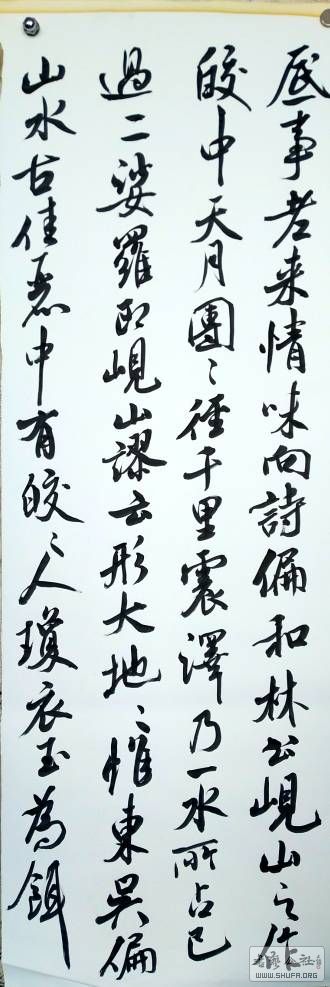 底事老来情味向詩偏和林公峴山之作
皎中天月團〻徑千里震澤乃一水所占已
過二娑羅即峴山謬云形大地〻惟東吳偏
山水古佳麗中有皎〻人瓊衣玉為餌
公社
WWW.SHUFA.ORG